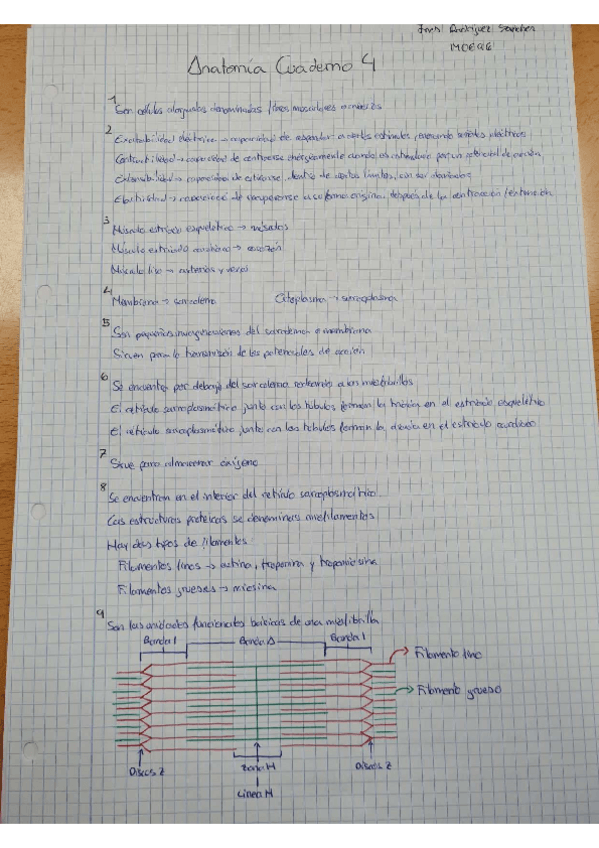 Rodríguez Sánchez
Anatomía Cuaderno 4
1
Son células alargadas denominadas fibras musculares o miocitos
2
Excitabilidad eléctrica → capacidad de responder a ciertos estímulos, generando señales eléctricas
Contractibilidad → capacidad de contraerse enérgicamente cuando es estimulado por un potencial de acción
Extensibilidad → capacidad de estirarse, dentro de ciertos límites, sin ser dañado
Elasticidad → capacidad de recuperarse a su forma original después de la contracción/extensión
3
Músculo estriado esquelético →
Músculo estriado cardiaco → corazón
Músculo liso → arterias y venas
4
Membrana → sarcolema Citoplasma → sarcoplasma
5
Son pequeñas invaginaciones del sarcolema o membrana
Sirven para la transmisión de los potenciales de acción
6
Se encuentra por debajo del sarcolema rodeando a las miofibrillas
El retículo sarcoplasmático junto con los túbulos forman la triada en el estriado esquelético
El retículo sarcoplasmático junto con los túbulos forman la diada en el estriado cardiaco
7
Sirve para almacenar oxígeno
8
Se encuentran en el interior del retículo sarcoplasmático
Las estructuras proteicas se denominan miofilamentos
Hay dos tipos de filamentos
Filamentos finos → actina, troponina y tropomiosina
Filamentos gruesos → miosina
9
Son las unidades funcionales básicas de una miofibrilla
Banda I Banda A Banda I
Filamento fino
Filamento grueso
Discos Z Zona H Discos Z
Línea M